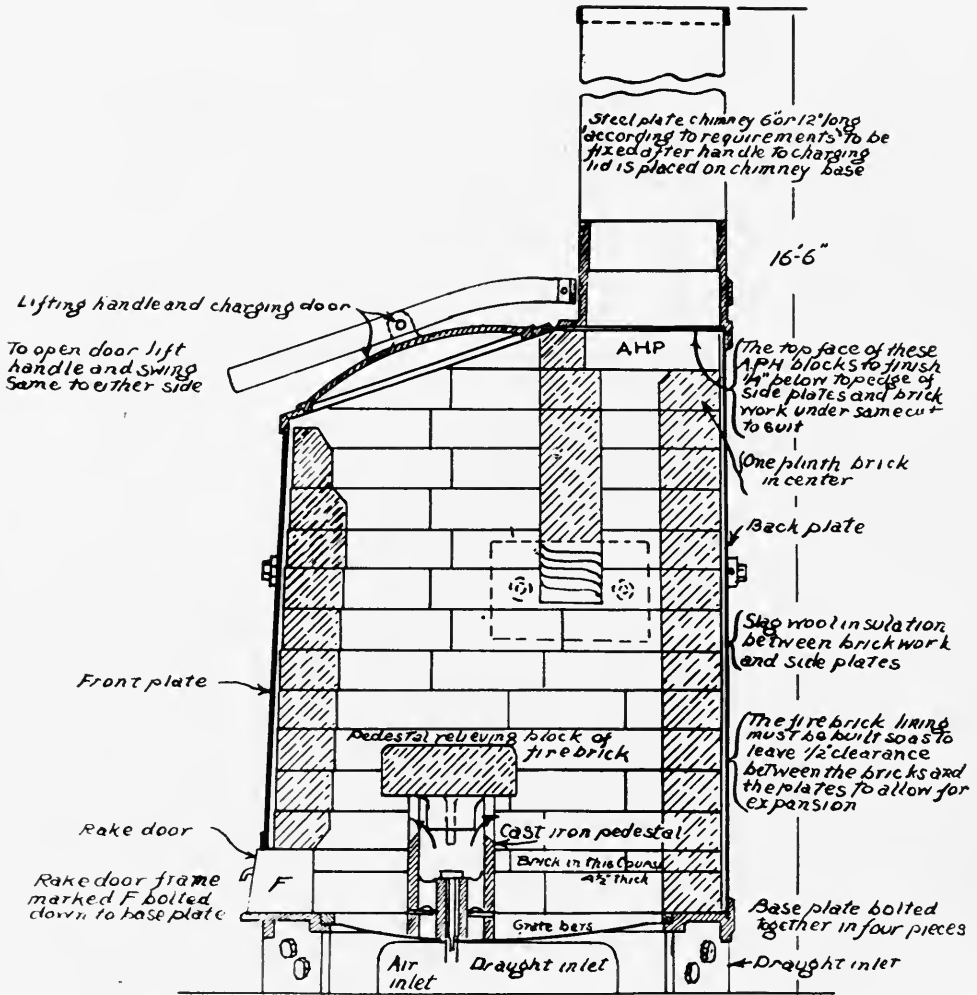 Steel plate chimney 6" or 12" long
"according to requirements" to be
fixed after handle to charging
lid is placed on chimney base
16'-6"
Lifting handle and charging door
To open door lift
handle and swing
Same to either side
AHP
The top face of these
APH blocks to finish
1/4" below top edge of
side plates and brick
work under same cut
to suit
One plinth brick
in center
Back plate
Slag wool insulation
between brickwork
and side plates
Front plate
Pedestal relieving block of
firebrick
The firebrick lining
must be built so as to
leave 1/2" clearance
between the bricks and
the plates to allow for
expansion
Rake door
Cast iron pedestal
Brick in this course
4 1/2" thick
F
Rake door frame
marked F bolted
down to base plate
Grate bars
Base plate bolted
together in four pieces
Air
inlet
Draught inlet
Draught inlet